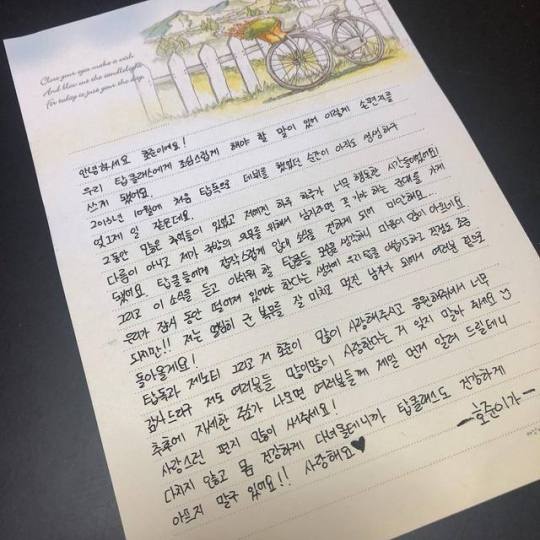 Close your eyes make a wish
And blow out the candlelight
for today is just your the day
안녕하세요 호준이에요!
우리 탑클래스에게 조심스럽게 해야 할 말이 있어 이렇게 손편지를
쓰게 됐어요.
2013년 10월에 처음 탑독으로 데뷔를 했었던 순간이 아직도 생생하구
엊그제 일 같은데요.
그동안 많은 추억들이 있었고 저에겐 하루 하루가 너무 행복한 시간들이였어요!
다름이 아니고 제가 국방의 의무를 위해서 남자라면 꼭 가야 하는 군대를 가게
됐어요. 탑클들에게 갑작스럽게 입대 소식을 전하게 되어 미안해요..
그리고 이 소식을 듣고 아쉬워 할 탑클들 모습을 생각하니 마음이 많이 아프네요.
우리가 잠시 동안 떨어져 있어야 한다는 생각에 우리 탑클 걱정도 조금
되지만!! 저는 씩씩하게 군 복무를 잘 마치고 멋진 남자가 되어서 여러분 곁으로
돌아올게요!
탑독과 제노티 그리고 저 호준이 많이 사랑해주시고 응원해줘서 너무
감사드리구 저도 여러분들 많이많이 사랑한다는 거 잊지 말아 줘요
추후에 자세한 주소가 나오면 여러분들께 제일 먼저 알려 드릴테니
사랑스런 편지 많이 써주세요!
다치지 않고 몸 건강하게 다녀올테니까 탑클래스도 건강하게
아프지 말구 있어요!! 사랑해요♥
-호준이가-